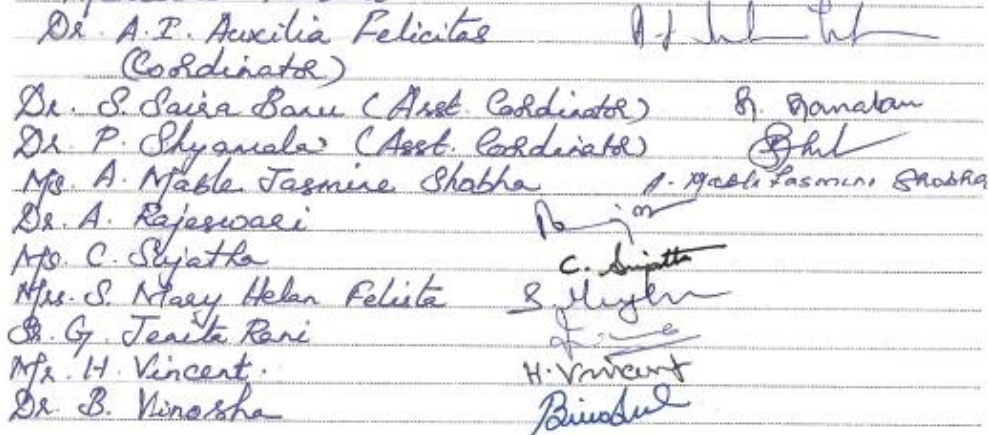 Dr. A.I. Auxilia Felicitas
(Coordinator)
Dr. S. Saira Banu (Asst. Cordinator)
Dr. P. Shyamala (Asst. Cordinator)
Ms. A. Mable Jasmine Shobha A. Mable Jasmine Shobha
Dr. A. Rajeswari
Ms. C. Sujatha C. Sujatha
Mrs. S. Mary Helan Felista
Sr. G. Jenita Rani
Mr. H. Vincent. H. Vincent
Dr. B. Vinosha